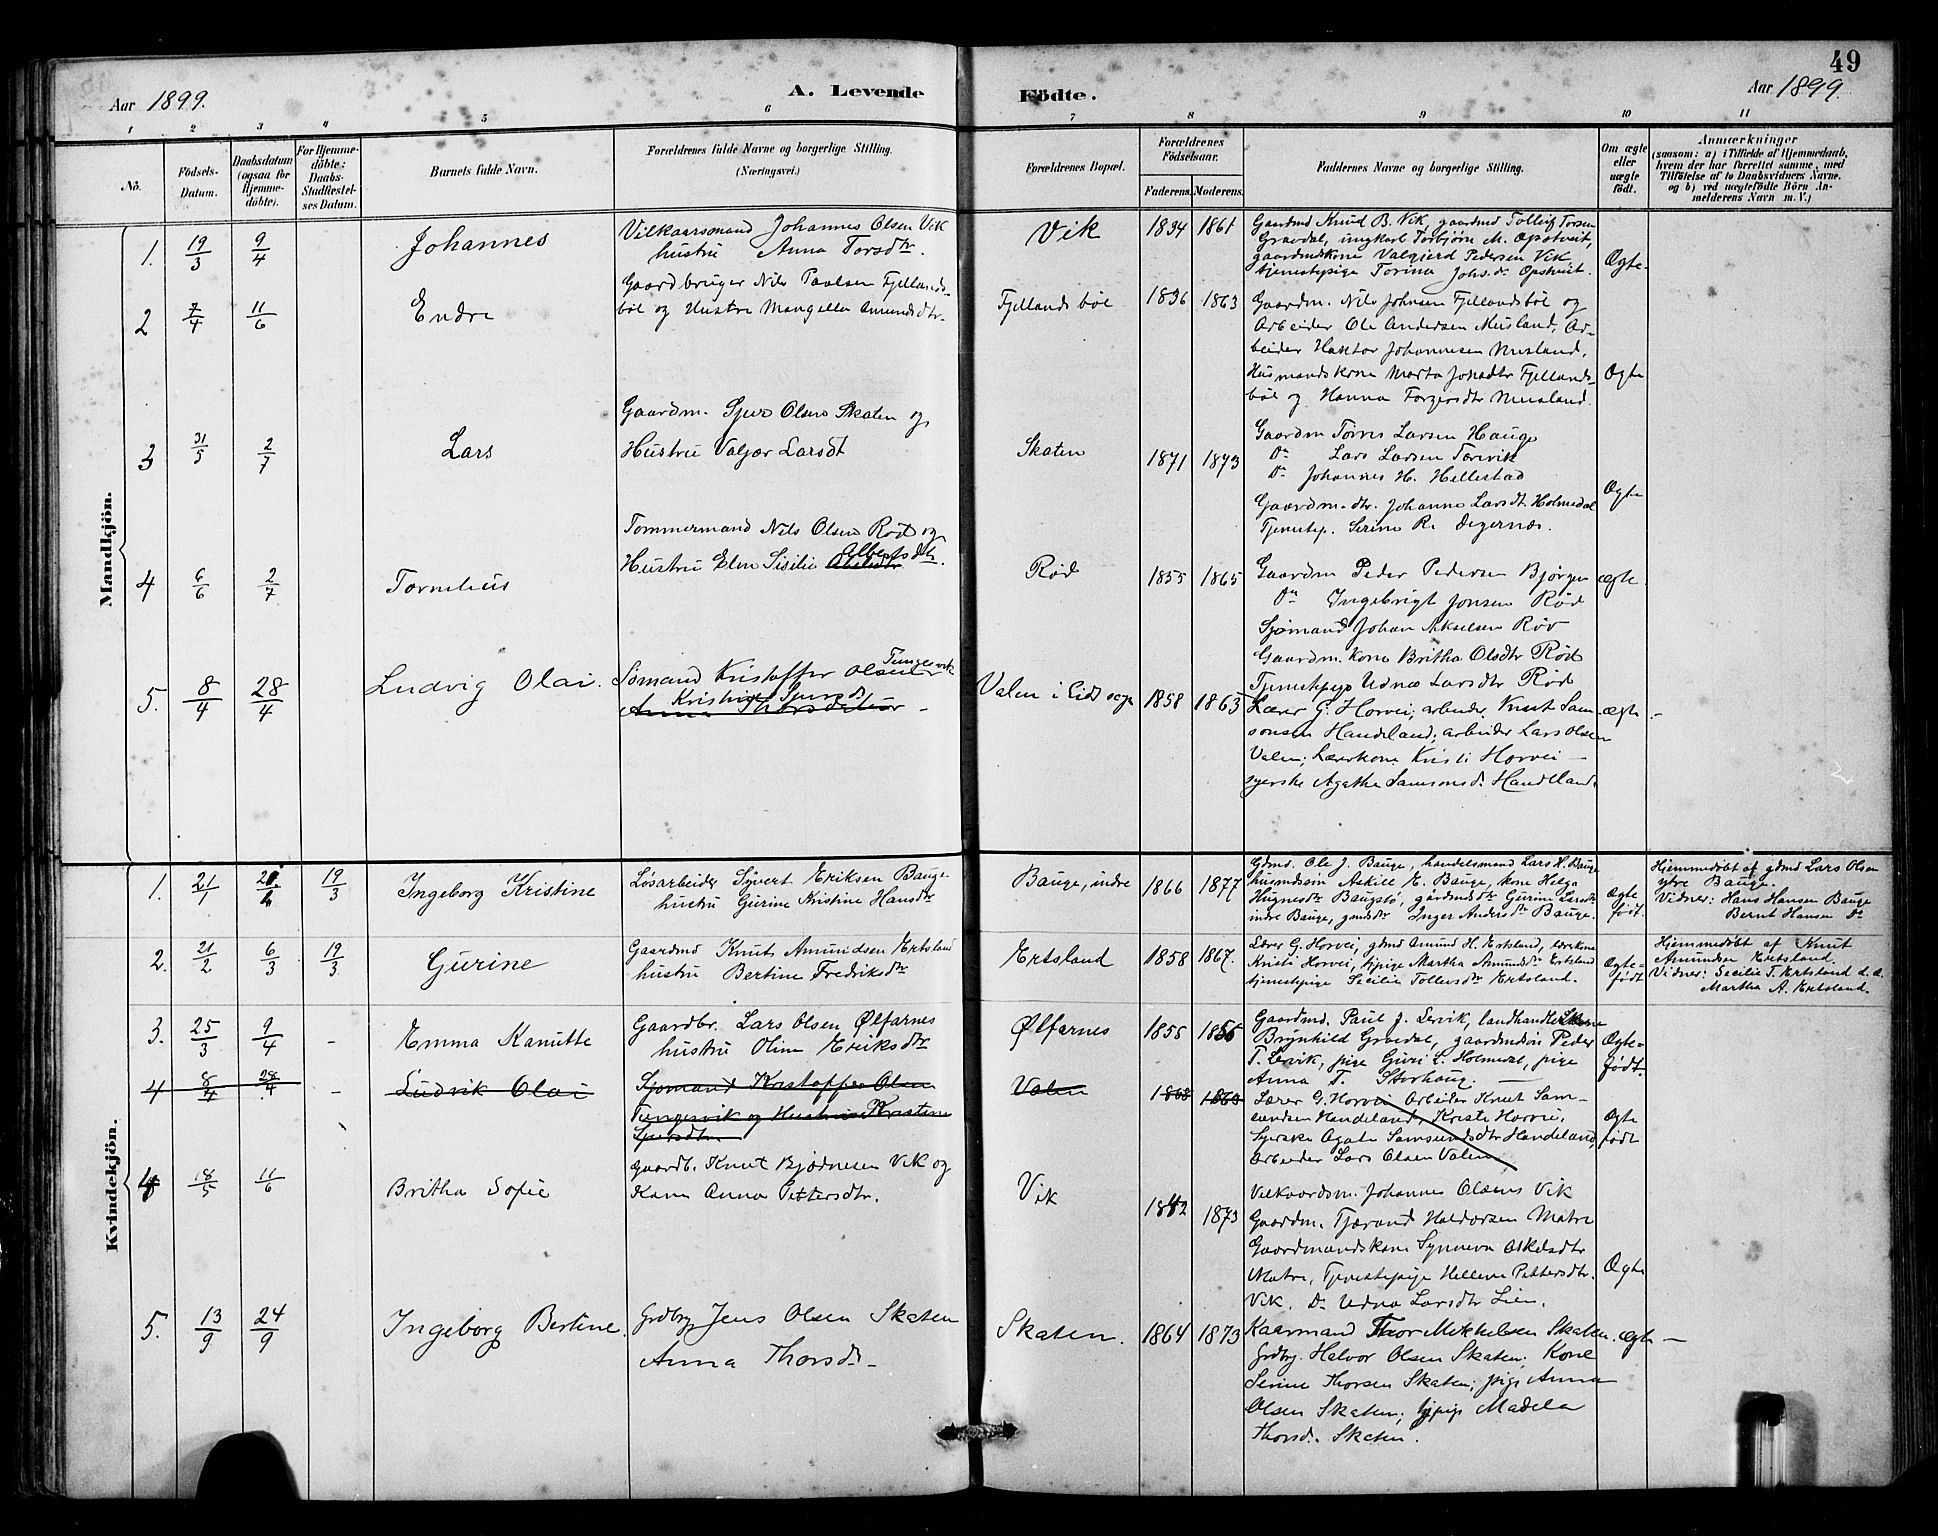 49
Aar 1899.
A. Levende
Födte.
Aar 1899.
1 2 3 4 5 6 7 8 9 10 11
No.
Födsels-
Datum.
Daabsdatum
(ogsaa for
Hjemme-
döbte).
For Hjemme-
döbte:
Daabs-
Stadfæstel-
ses Datum.
Barnets fulde Navn.
Forældrenes fulde Navne og borgerlige Stilling.
(Næringsvei.)
Forældrenes Bopæl.
Forældrenes
Födselsaar.
Faderens. Moderens.
Faddernes Navne og borgerlige Stilling.
Om ægte
eller
uægte
födt.
Anmærkninger
(saasom: a) i Tilfælde af Hjemmedaab,
hvem der har forrettet samme, med
Tilföielse af to Daabsvidners Navne.
og b) ved uægtefödte Börn An-
melderens Navn m. V.)
Mandkjön.
1. 19/3 9/4
Johannes
Vilkaarsmand Johannes Olsen Vik
hustru Anna Torsdtr.
Vik
1834 1861
Gaardmd Knud B. Vik, gaardmd Tolleif Torsen
Gravdal, ungkarl Torbjørn M. Opstveit,
gaardmdskone Valgjerd Pedersen Vik
tjenestepige Torina Johs.dr Opstveit.
Ægte
2 7/4 11/6
Endre
Gaardbruger Nils Paulsen Fjellands-
böl og Hustru Mangella Amundsdtr.
Fjellandsböl
1836 1863
Gaardm. Nils Johnsen Fjellandsböl og
Arbeider Ole Andersen Musland, Ar-
beider Haktor Johannesen Musland,
Husmandskone Marta Jonsdtr Fjellands-
böl og Hanna Torgersdtr Musland.
Ægte
3 31/5 2/7
Lars
Gaardm. Sjur Olsen Skaten og
Hustru Valgjer Larsdt
Skaten
1871 1873
Gaardm Torres Larsen Hauge
Do Lars Larsen Tarevik
Do Johannes H. Hellestad
Gaardm.dtr. Johanne Larsdt Holmedal
Tjenestep. Serine R. Degernæs.
Ægte
4 6/6 2/7
Tornelius
Tommermand Nils Olsen Rød og
Hustru Elen Sisilie Albertsdtr.
Rød
1855 1865
Gaardm Peder Pedersen Bjørgen
Do Ingebrigt Jonsen Rød
Sjømand Johan Akselsen Röv
Gaardm. kone Britha Olsdtr Rød
Tjenestepige Udnæ Larsdtr Rød
ægte
5. 8/4 28/4
Ludvig Olai.
Sømand Kristoffer Olsen Tungesvik
Kristine Sjursdr
Anna Thorsdatter
Valen i Eid sogn
1858 1863
Lærer G. Horvei; arbeider Knut Sam-
sonsen Handeland; arbeider Lars Olsen
Valen; Lærerkone Kristi Horvei –
syerske Agathe Samsonsdr Handeland.
ægte –
Kvindekjön.
1. 21/1 19/3
Ingeborg Kristine
Løsarbeider Syvert Eriksen Bauge
hustru Gurine Kristine Hansdtr
Bauge, indre
1866 1877
Gdmd. Ole J. Bauge, handelsmand Lars H. Bauge
husmdssøn Askill E. Bauge, kone Helga
Hugnesdr Baugstø, gårdmdsdtr Gurine Larsdtr
indre Bauge, gmdsdtr Inger Andersdtr Bauge.
Ægte
født.
Hjemmedøbt af gdmd Lars Olsen
ytre Bauge.
Vidner: Hans Hansen Bauge
Bernt Hansen do
2. 21/2 6/3 19/3
Gurine
Gaardmd Knut Amundsen Ertsland
hustru Bertine Fredriksdtr
Ertsland
1858 1867.
Lærer G. Horvei, gdmd Amund H. Ertsland, lærerkone
Kristi Horvei, tjpige Martha Amundsdtr Ertsland
tjenestepige Secilia Tollefsdtr Ertsland.
Ægte-
født
Hjemmedøbt af Knut
Amundsen Ertsland.
Vidner: Secilie T. Ertsland s. s.
Martha A. Ertsland.
3. 25/3 9/4 –
Emma Kanutte
Gaardbr. Lars Olsen Ølfarnes
hustru Oline Eriksdtr
Ølfarnes
1855 1856
Gaardmd. Paul J. Lervik, landhandlerkone
Brynhild Gravdal, gaardmdsøn Peder
T. Lervik, pige Guri L. Holmedal, pige
Anna T. Storhaug.
Ægte-
født.
4 8/4 28/4 –
Ludvik Olai
Sjømand Kristoffer Olsen
Tungesvik og Hustru Kristine
Sjursdtr.
Valen
1868 1863
Lærer G. Horvei Arbeider Knut Sam-
sundsen Handeland, Kriste Horvei,
Syerske Agate Samsundsdtr Handeland,
Arbeider Lars Olsen Valen
Ægte
født
4 18/5 11/6
Britha Sofie
Gaardb. Knut Bjødnesen Vik og
Kone Anna Pettersdtr.
Vik
1842 1873
Vilkaardsm. Johannes Olsens Vik
Gaardm. Tjærand Haldorsen Matre
Gaardmandskone Synneva Askelsdtr
Matre, Tjenestepige Hellene Pettersdtr.
Vik. Do Udna Larsdtr Lien.
Ægte
5. 13/9 24/9
Ingeborg Bertine.
Grdbrg Jens Olsen Skaten
Anna Thorsdr –
Skaten.
1864 1873
Kaarmand Thor Mikkelsen Skaten.
Grdbrg. Halvor Olsen Skaten; Kone
Serine Thorsen Skaten; pige Anna
Olsen Skaten; tjpige Madela
Thorsd. Skaten.
ægte –